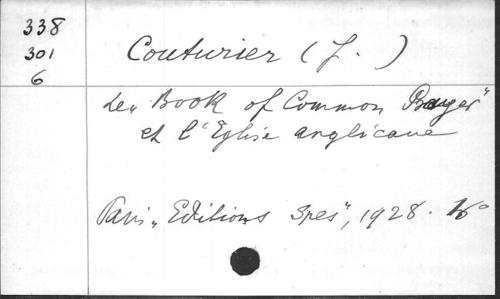 338
301
6
Couturier (J. )
Le „Book of Common Prayer"
et l'Eglise anglicane
Paris „Editions Spes", 1928. 16°